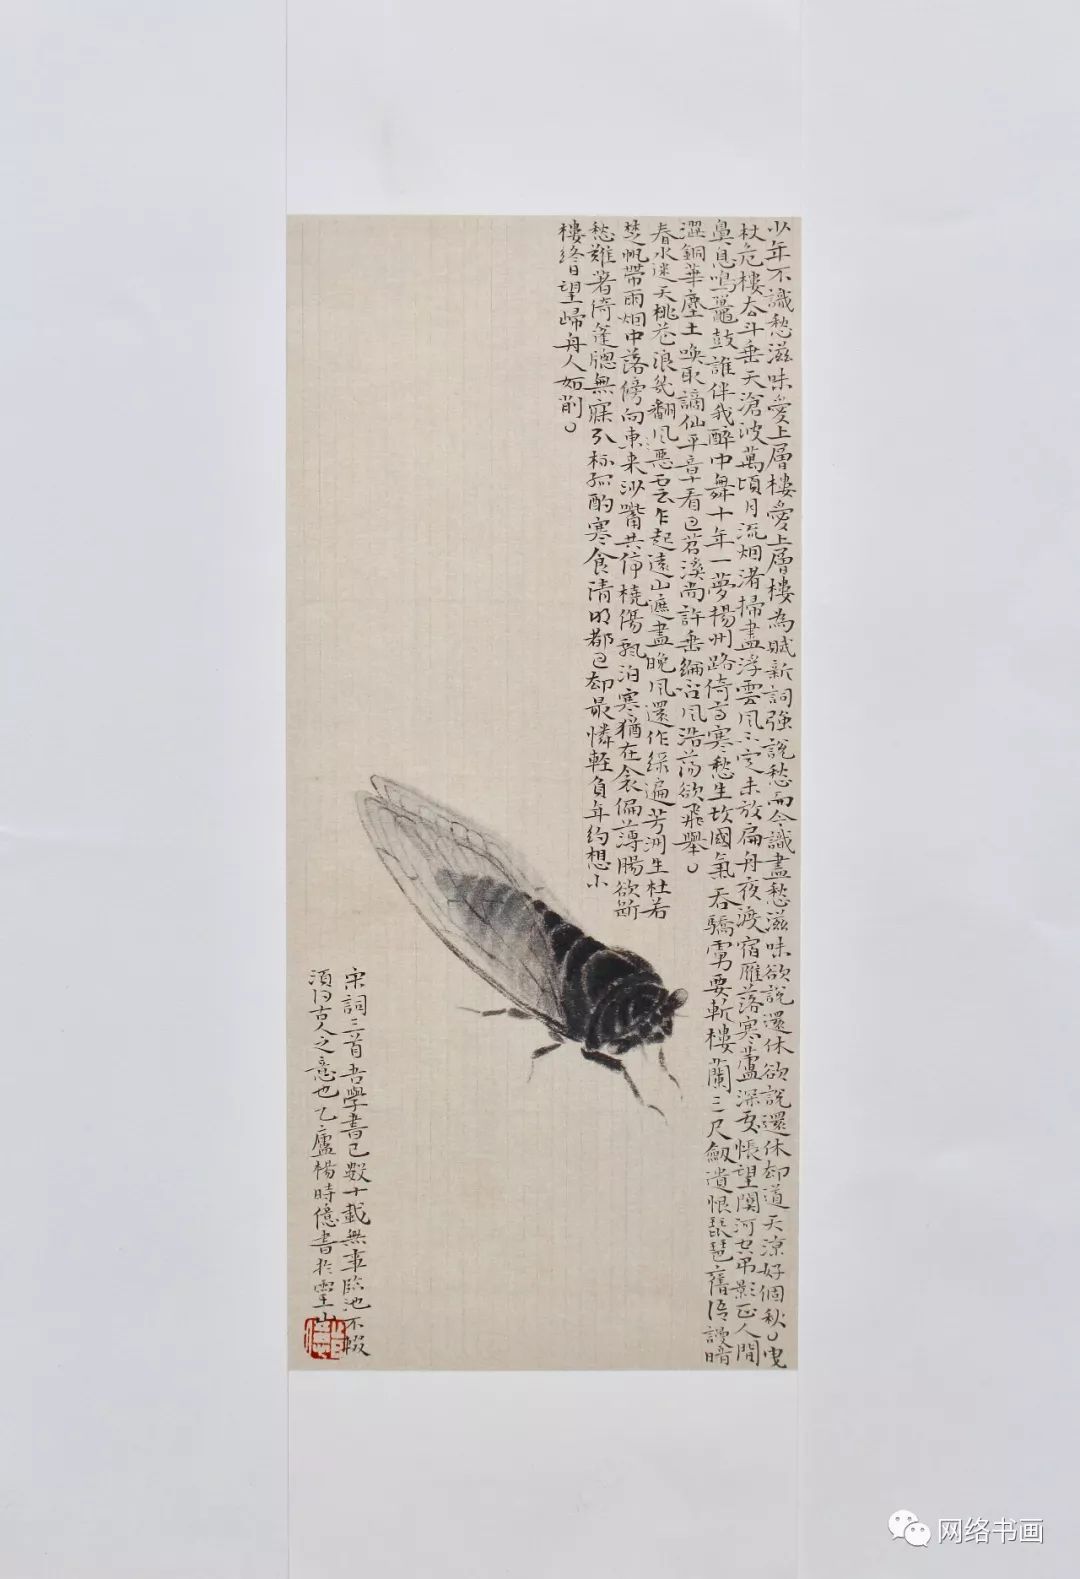 少年不識愁滋味愛上層樓愛上層樓為賦新詞強說愁而今識盡愁滋味欲說還休欲說還休却道天涼好個秋曳
杖危樓去斗垂天滄波萬頃月流烟渚掃盡浮雲風不定未放扁舟夜渡宿雁落寒蘆深處悵望關河空弔影正人間
鼻息鳴鼉鼓誰伴我醉中舞十年一夢揚州路倚高寒愁生故國氣吞驕虜要斬樓蘭三尺劍遺恨琵琶舊語謾暗
澀銅華塵土喚取謫仙平章看過苕溪尚許垂綸否風浩蕩欲飛舉
春水迷天桃花浪幾翻風惡雲乍起遠山遮盡晚風還作綠遍芳洲生杜若
楚帆帶雨烟中落傍向東來沙嘴共停橈傷飄泊寒猶在衾偏薄腸欲斷
愁難著倚篷窗無寐引杯孤酌寒食清明都過却最憐輕負年約想小
樓終日望歸舟人如削
宋詞三首吾學書已數十載無事臨池不輟
須同古人之意也乙廬楊時億書於靈山
网络书画